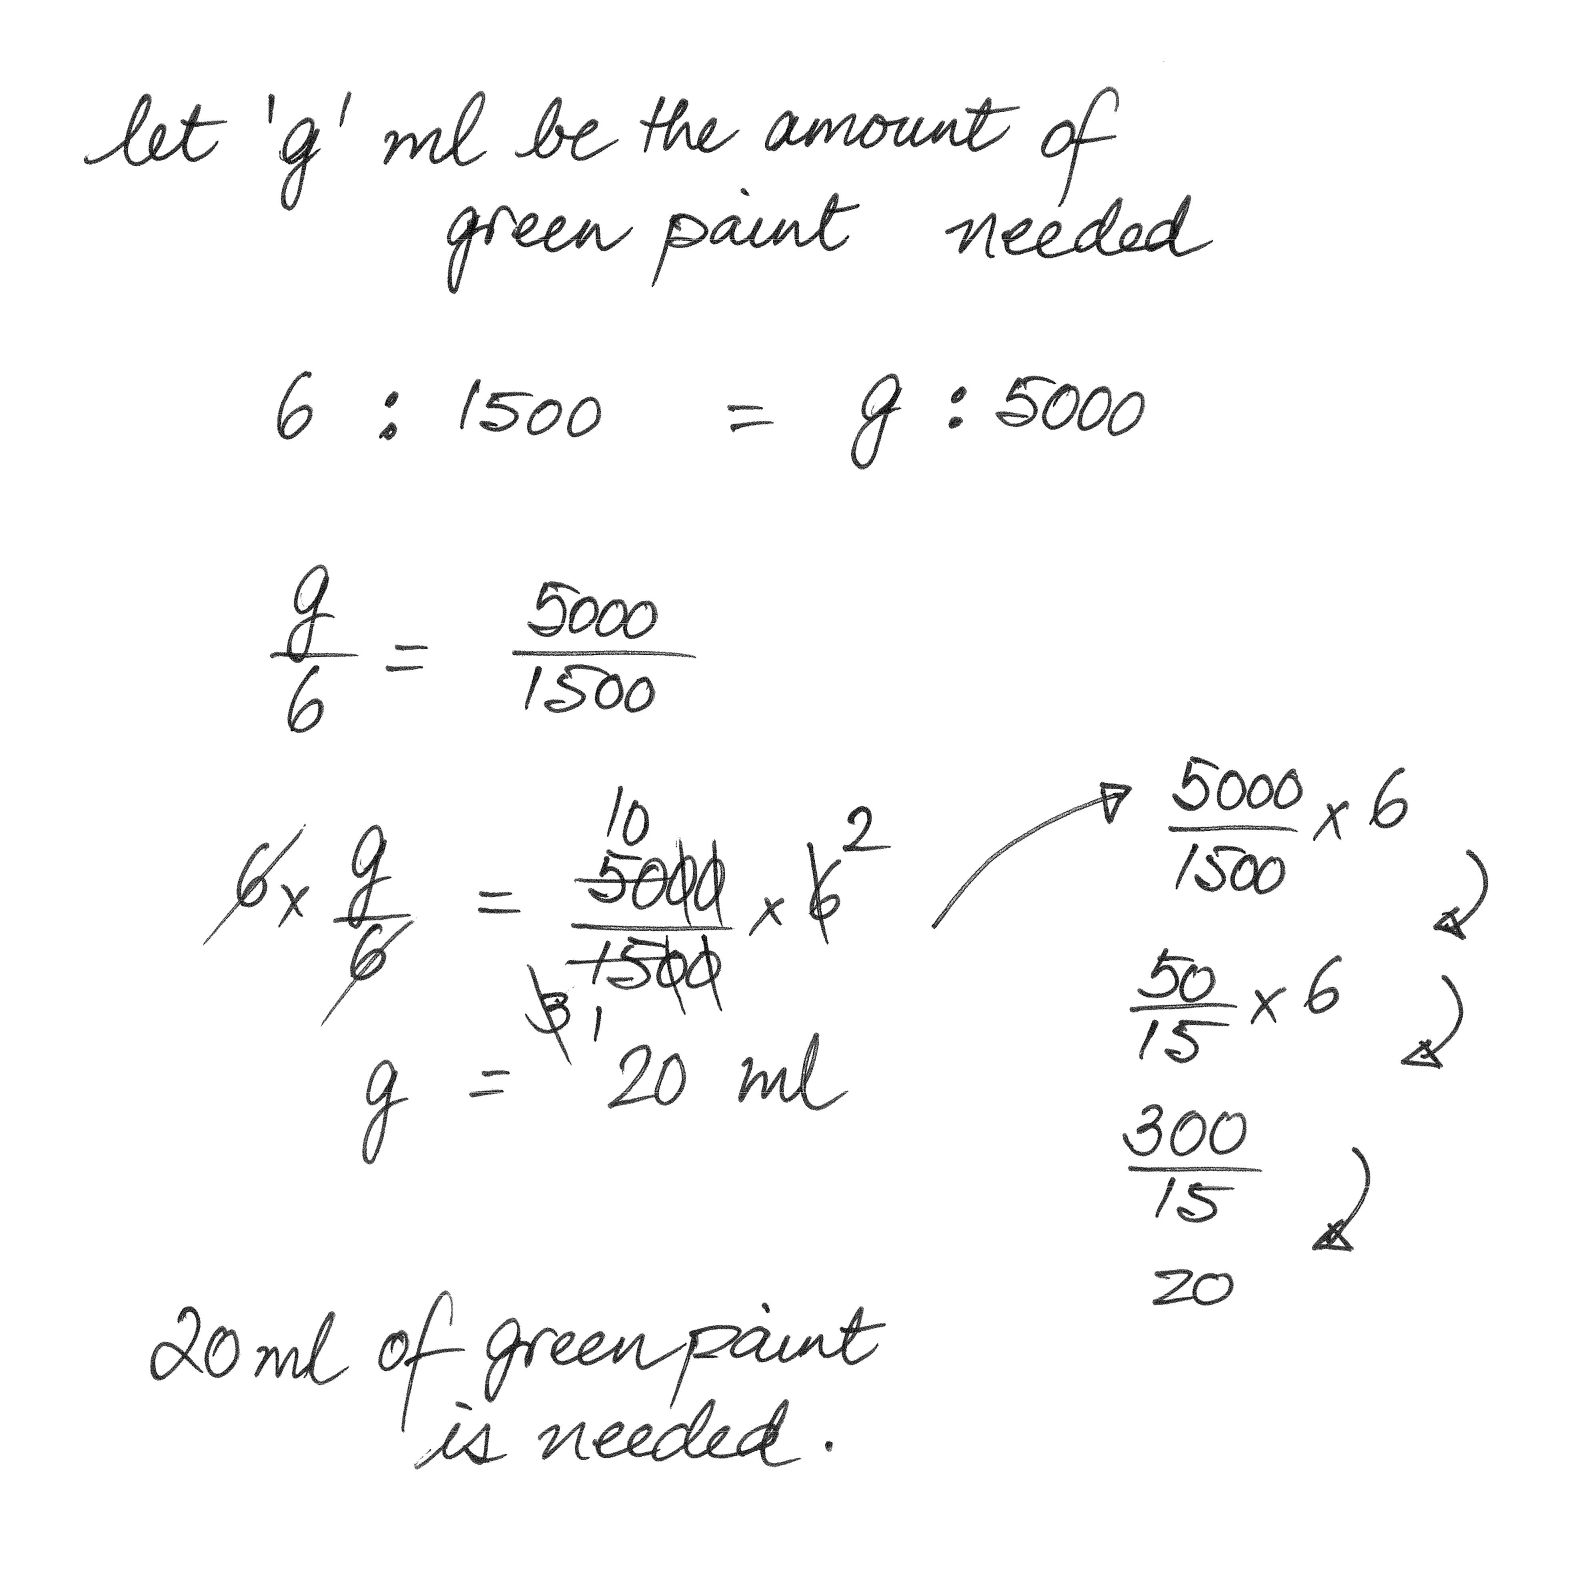 let 'g' ml be the amount of
green paint needed
6 : 1500 = g : 5000
g/6 = 5000/1500
6 x g/6 = 5000/1500 x 6
10 2
3 1
g = 20 ml
5000/1500 x 6
50/15 x 6
300/15
20
20 ml of green paint
is needed.